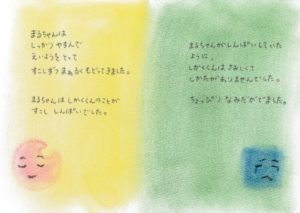 まるちゃんは
しっかり やすんで
えいようを とって
すこしずつ まあるく もどってきました。
まるちゃんは しかくくんのことが
すこし しんぱいでした。
まるちゃんが しんぱいしていた
ように、
しかくくんは さみしくて
しかたが ありませんでした。
ちょっぴり なみだがでました。